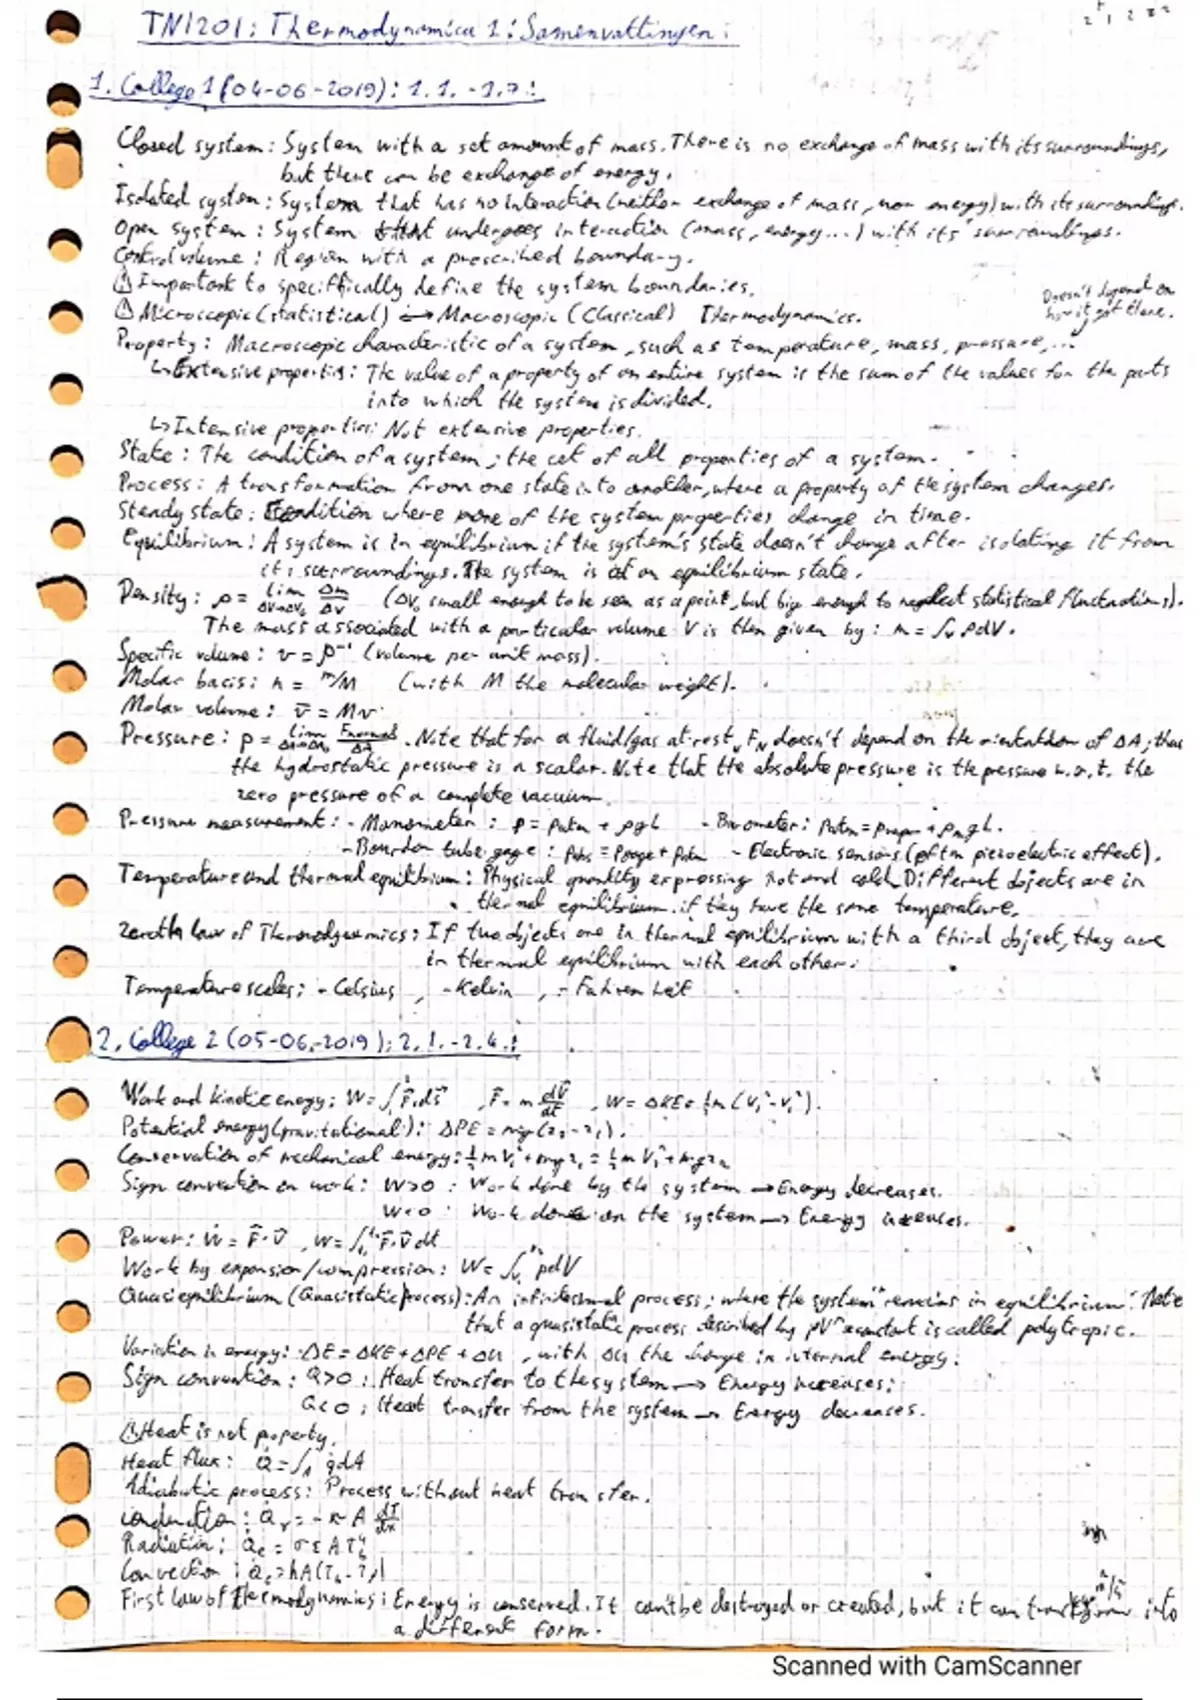 TN1201: Thermodynamica 1: Samenvattingen:
1. College 1 (04-06-2019): 1.1. -1.7.:
Closed system: System with a set amount of mass. There is no exchange of mass with its surroundings,
but there can be exchange of energy.
Isolated system: System that has no interaction (neither exchange of mass, nor energy) with its surroundings.
Open system: System that undergoes interaction (mass, energy...) with its surroundings.
Control volume: Region with a prescribed boundary.
⚠ Important to speciffically define the system boundaries.
⚠ Microscopic (statistical) ↔ Macroscopic (Classical) Thermodynamics.
Doesn't depend on
how it got there.
Property: Macroscopic characteristic of a system, such as temperature, mass, pressure,...
↳ Extensive properties: The value of a property of an entire system is the sum of the values for the parts
into which the system is divided.
↳ Intensive properties: Not extensive properties.
State: The condition of a system; the set of all properties of a system.
Process: A transformation from one state into another, where a property of the system changes.
Steady state: Condition where none of the system properties change in time.
Equilibrium: A system is in equilibrium if the system's state doesn't change after isolating it from
its surroundings. The system is at an equilibrium state.
Density: ρ = lim ΔV→ΔV₀ Δm/ΔV (ΔV₀ small enough to be seen as a point, but big enough to neglect statistical fluctuations).
The mass associated with a particular volume V is then given by: m = ∫ᵥ ρdV.
Specific volume: v = ρ⁻¹ (volume per unit mass).
Molar basis: n = m/M (with M the molecular weight).
Molar volume: v̄ = Mv
Pressure: p = lim ΔA→ΔA₀ Fnormal/ΔA. Note that for a fluid/gas at rest, F_N doesn't depend on the orientation of ΔA; thus
the hydrostatic pressure is a scalar. Note that the absolute pressure is the pressure w.r.t. the
zero pressure of a complete vacuum.
Pressure measurement: - Manometer: p = patm + ρgL - Barometer: patm = pvapor + ρₘgL.
- Bourdon tube gage: pabs = pgage + patm - Electronic sensors (often piezoelectric effect).
Temperature and thermal equilibrium: Physical quantity expressing hot and cold. Different objects are in
thermal equilibrium if they have the same temperature.
Zeroth law of Thermodynamics: If two objects are in thermal equilibrium with a third object, they are
in thermal equilibrium with each other.
Temperature scales: - Celsius, - Kelvin, - Fahrenheit
2. College 2 (05-06-2019): 2.1. -2.4.:
Work and kinetic energy: W = ∫F⃗·ds⃗, F⃗ = m dV⃗/dt, W = ΔKE = ½m(V₂²-V₁²).
Potential energy (gravitational): ΔPE = mg(z₂-z₁).
Conservation of mechanical energy: ½mV₁² + mgz₁ = ½mV₂² + mgz₂
Sign convention on work: W>0: Work done by the system → Energy decreases.
W<0: Work done on the system → Energy increases.
Power: Ẇ = F⃗·V⃗, W = ∫F⃗·V⃗dt
Work by expansion/compression: W = ∫pdV
Quasiequilibrium (Quasistatic process): An infinitesimal process; where the system "remains in equilibrium". Note
that a quasistatic process described by pVⁿ=constant is called polytropic.
Variation in energy: ΔE = ΔKE + ΔPE + ΔU, with ΔU the change in internal energy.
Sign convention: Q>0: Heat transfer to the system → Energy increases;
Q<0: Heat transfer from the system → Energy decreases.
⚠ Heat is not property.
Heat flux: Q̇ = ∫_A q̇dA
Adiabatic process: Process without heat transfer.
Conduction: Q̇ₓ = -κA dT/dx
Radiation: Q̇ₑ = σεAT_b⁴
Convection: Q̇c = hA(T_b-T_f)
First law of Thermodynamics: Energy is conserved. It can't be destroyed or created, but it can transform into
a different form.
Scanned with CamScanner